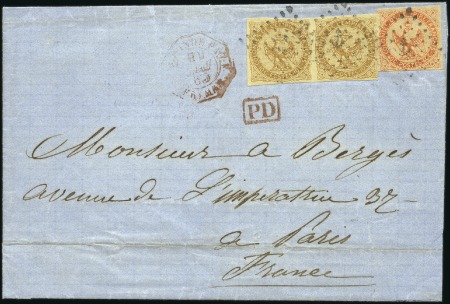 PD
Monsieur A Bergès
avenue de L'imperatrice 37
a Paris
France